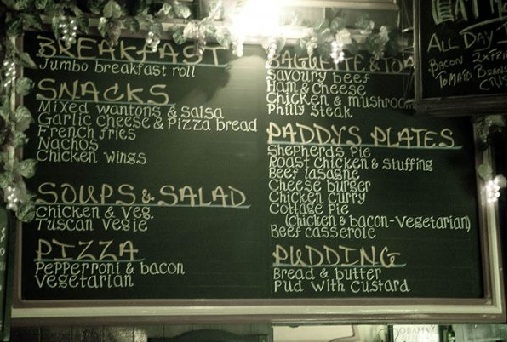 BREAKFAST
Jumbo breakfast roll
SNACKS
Mixed wantons & salsa
Garlic cheese & Pizza bread
French fries
Nachos
Chicken wings
SOUPS & SALAD
Chicken & Veg.
Tuscan Vegie
PIZZA
Pepperroni & bacon
Vegetarian
BAGUETTE &
Savoury beef
Ham & Cheese
Chicken & mushroom
Philly steak
PADDY'S PLATES
Shepherds Pie
Roast Chicken & Stuffing
Beef lasagne
Cheese burger
Chicken curry
Cottage Pie
(Chicken & bacon-Vegetarian)
Beef casserole
PUDDING
Bread & butter
Pud with Custard
ALL DAY
Bacon
Tomato